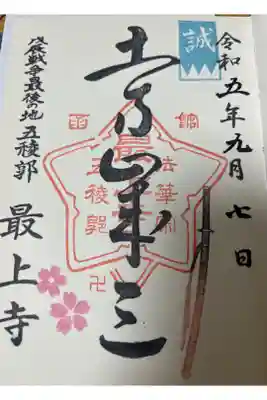 令和五年九月七日
誠
土方歳三
函館
法華宗
最上寺
五稜郭
卍
戊辰戦争最後の地
五稜郭
最上寺